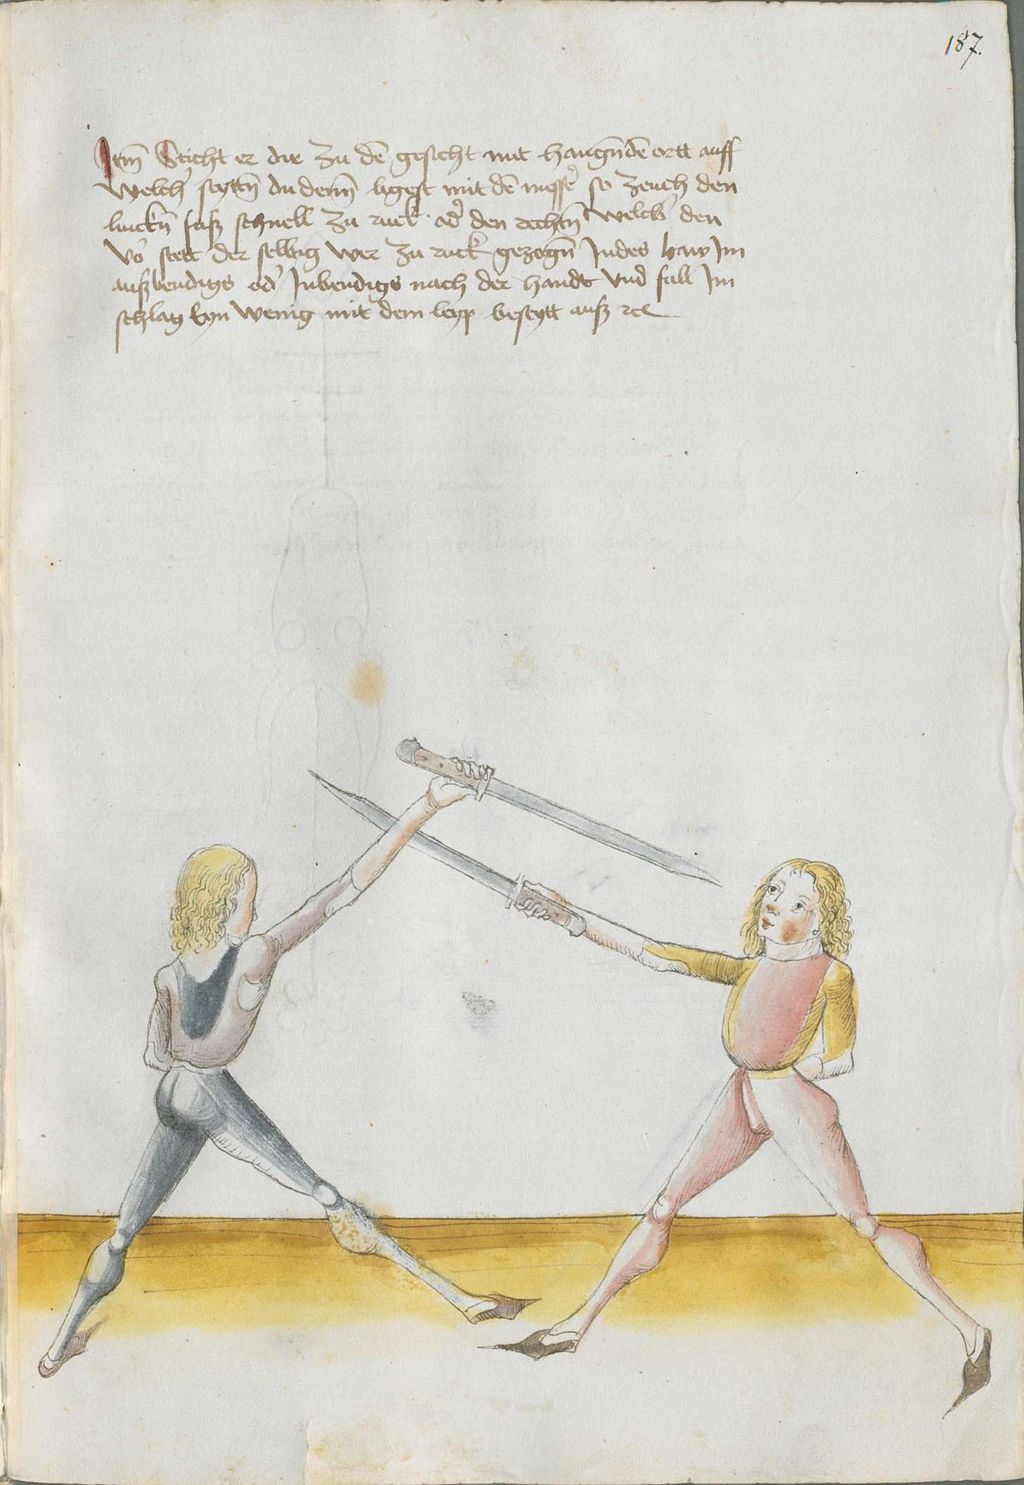 187.
Itm̄ Sticht er dir zu dē gesicht mit hangn̄dē ortt auff
welch' seyttn̄ du denn̄ ligst mit dē messe' so zeuch den
linckn̄ fusz schnell zu ruck od' den rechtn̄ welch' den
vō stett der selbig wer zu ruck gezogn̄ Indes haw Im
auszwendigs od' Inwendigs nach der handt vnd fall Im
schlag eyn wenig mit dem leyp beseytt ausz rc